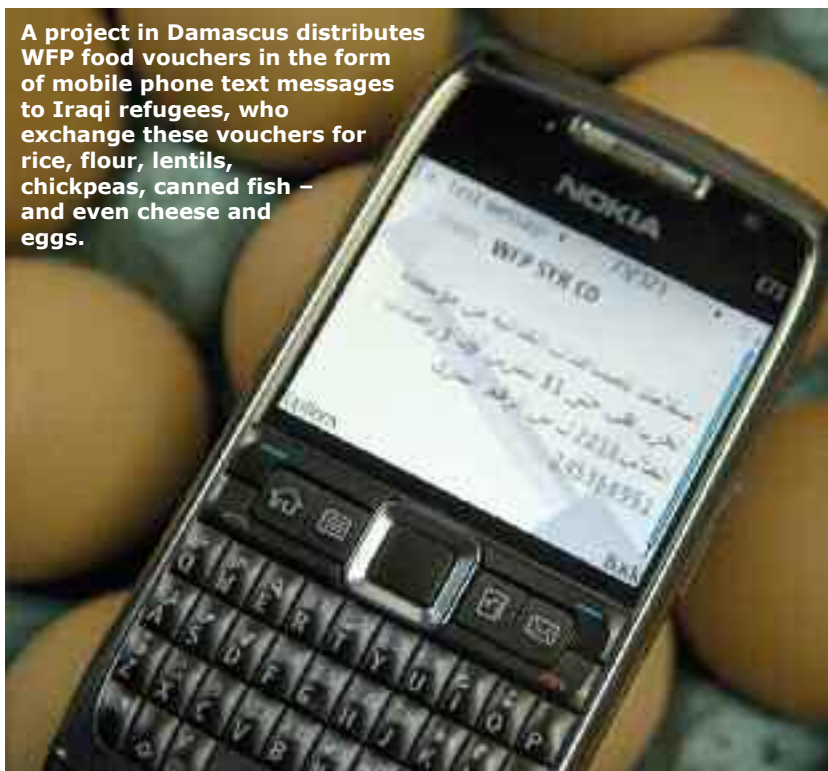 A project in Damascus distributes
WFP food vouchers in the form
of mobile phone text messages
to Iraqi refugees, who
exchange these vouchers for
rice, flour, lentils,
chickpeas, canned fish –
and even cheese and
eggs.
NOKIA
E71
Text message
WFP SYR CO
Options
Back
Q W E R T Y U I O P
A S D F G H J K L
Z X C V B